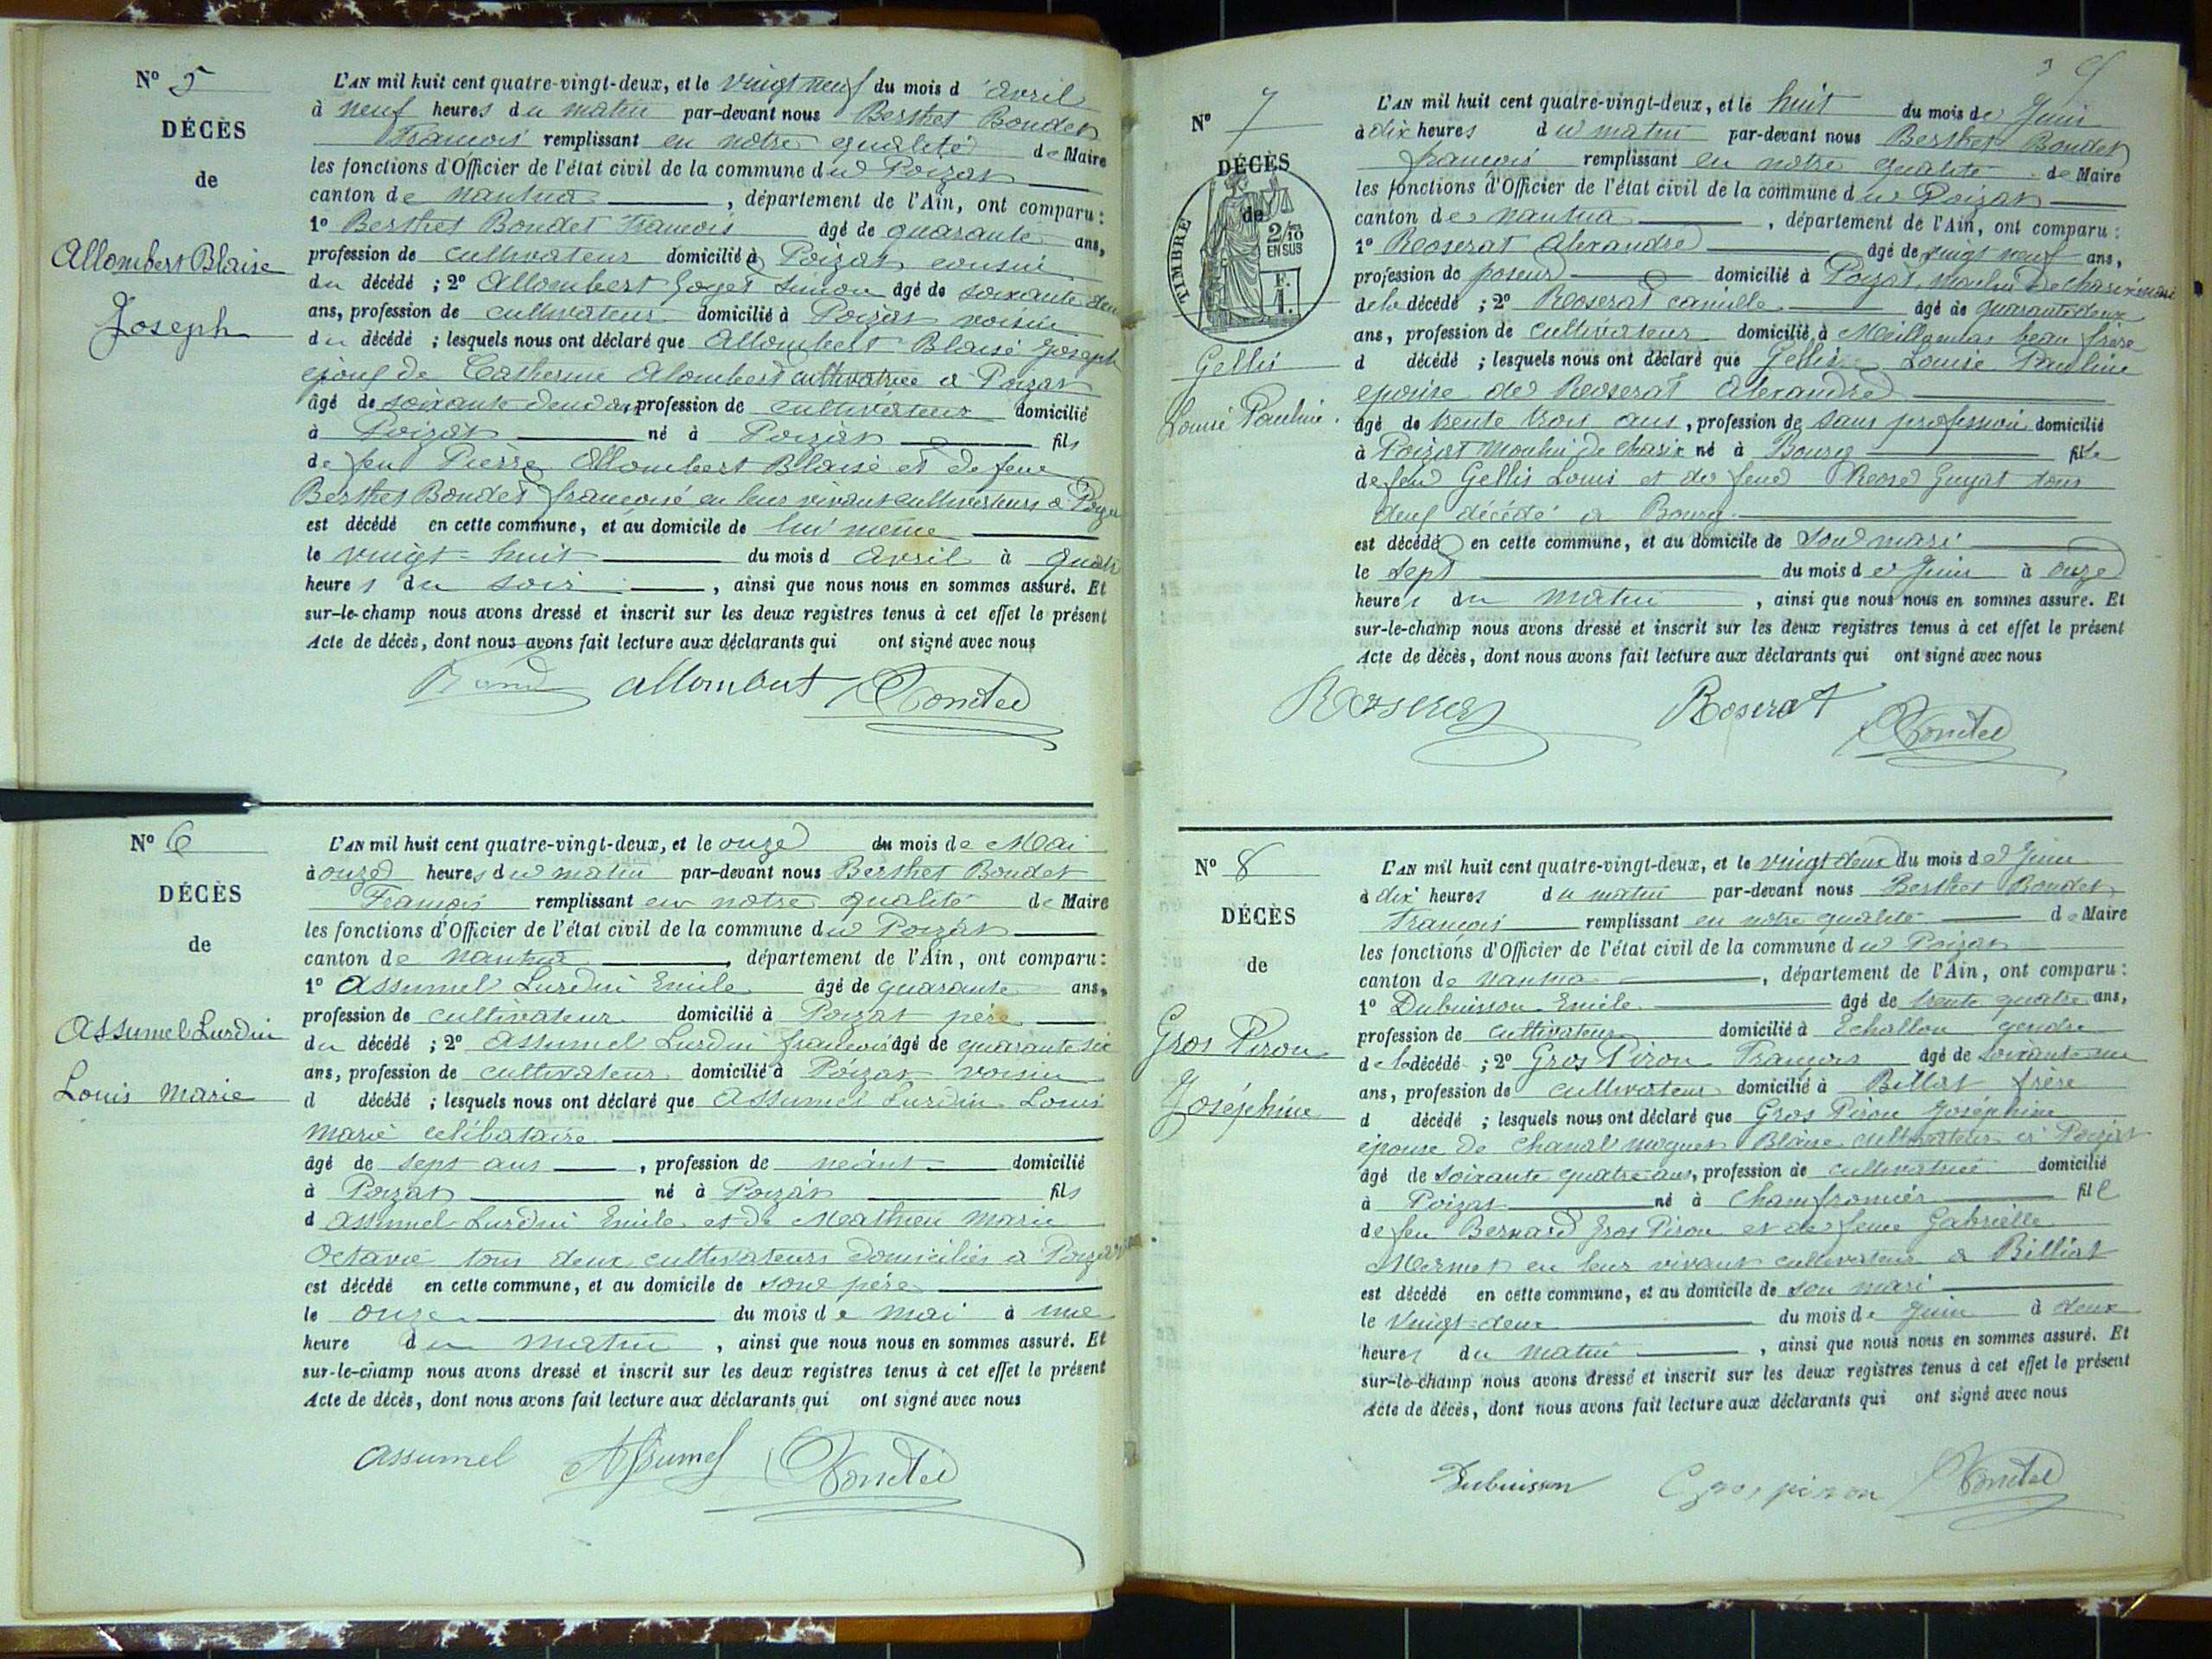 Nº 5
DÉCÈS
de
Allombert Blaise
Joseph
L'AN mil huit cent quatre-vingt-deux, et le vingt neuf du mois d'avril
à neuf heures du matin par-devant nous Berthet Bondet
francois remplissant en notre qualité de Maire
les fonctions d'Officier de l'état civil de la commune du Poizat
canton de Nantua, département de l'Ain, ont comparu :
1º Berthet Bondet francois âgé de quarante ans,
profession de cultivateur domicilié à Poizat cousin
du décédé ; 2º Allombert Goget Simon âgé de soixante deux
ans, profession de cultivateur domicilié à Poizat voisin
du décédé ; lesquels nous ont déclaré que Allombert Blaise Joseph
époux de Catherine Alombert cultivatrice à Poizat
âgé de soixante deux ans, profession de cultivateur domicilié
à Poizat né à Poizat fils
de feu Pierre Allombert Blaise et de feue
Berthet Bondet françoise en leur vivant cultivateurs à Poizat
est décédé en cette commune, et au domicile de lui meme
le vingt-huit du mois d avril à quatre
heures du soir, ainsi que nous nous en sommes assuré. Et
sur-le-champ nous avons dressé et inscrit sur les deux registres tenus à cet effet le présent
Acte de décès, dont nous avons fait lecture aux déclarants qui ont signé avec nous
allombert Bondet
Nº 6
DÉCÈS
de
Assumel Lurdin
Louis Marie
L'AN mil huit cent quatre-vingt-deux, et le onze du mois de Mai
à onze heures du matin par-devant nous Berthet Bondet
François remplissant en notre qualité de Maire
les fonctions d'Officier de l'état civil de la commune du Poizat
canton de Nantua, département de l'Ain, ont comparu :
1º Assumel Lurdin Emile âgé de quarante ans,
profession de cultivateur domicilié à Poizat père
du décédé ; 2º Assumel Lurdin francois âgé de quarante six
ans, profession de cultivateur domicilié à Poizat voisin
d décédé ; lesquels nous ont déclaré que Assumel Lurdin Louis
Marie célibataire
âgé de sept ans, profession de néant domicilié
à Poizat né à Poizat fils
d Assumel Lurdin Emile et de Mathieu Marie
Octavie tous deux cultivateurs domiciliés à Poizat
est décédé en cette commune, et au domicile de son père
le onze du mois de mai à une
heure du matin, ainsi que nous nous en sommes assuré. Et
sur-le-champ nous avons dressé et inscrit sur les deux registres tenus à cet effet le présent
Acte de décès, dont nous avons fait lecture aux déclarants qui ont signé avec nous
assumel Assumel Bondet
Nº 7
DÉCÈS
de
TIMBRE
2/10
EN SUS
F.
1.
Gellis
Louise Pauline
L'AN mil huit cent quatre-vingt-deux, et le huit du mois de Juin
à dix heures du matin par-devant nous Berthet Bondet
françois remplissant en notre qualité de Maire
les fonctions d'Officier de l'état civil de la commune du Poizat
canton de Nantua, département de l'Ain, ont comparu :
1º Roserat Alexandre âgé de vingt neuf ans,
profession de poseur domicilié à Poizat moulin de charix mari
de la décédé ; 2º Roserat camille âgé de quarante deux
ans, profession de cultivateur domicilié à beau frère
d décédé ; lesquels nous ont déclaré que Gellis Louise Pauline
épouse de Roserat Alexandre
âgé de trente trois ans, profession de sans profession domicilié
à Poizat Moulin de charix né à Bourg fille
de feu Gellis Louis et de feue Rose Guyat tous
deux décédé à Bourg
est décédé en cette commune, et au domicile de son mari
le sept du mois de Juin à onze
heures du matin, ainsi que nous nous en sommes assuré. Et
sur-le-champ nous avons dressé et inscrit sur les deux registres tenus à cet effet le présent
Acte de décès, dont nous avons fait lecture aux déclarants qui ont signé avec nous
Roserat Roserat Bondet
Nº 8
DÉCÈS
de
Gros Piron
Joséphine
L'AN mil huit cent quatre-vingt-deux, et le vingt deux du mois de Juin
à dix heures du matin par-devant nous Berthet Bondet
François remplissant en notre qualité de Maire
les fonctions d'Officier de l'état civil de la commune du Poizat
canton de Nantua, département de l'Ain, ont comparu :
1º Dubuisson Emile âgé de trente quatre ans,
profession de cultivateur domicilié à Echallon gendre
de la décédé ; 2º Gros Piron François âgé de soixante un
ans, profession de cultivateur domicilié à Billiat frère
d décédé ; lesquels nous ont déclaré que Gros Piron Joséphine
épouse de Chanal Blaise cultivateur à Poizat
âgé de soixante quatre ans, profession de cultivatrice domicilié
à Poizat né à Chamfromier fille
de feu Bernard Gros Piron et de feue Gabrielle
Mermet en leur vivant cultivateurs à Billiat
est décédé en cette commune, et au domicile de son mari
le vingt-deux du mois de Juin à deux
heures du matin, ainsi que nous nous en sommes assuré. Et
sur-le-champ nous avons dressé et inscrit sur les deux registres tenus à cet effet le présent
Acte de décès, dont nous avons fait lecture aux déclarants qui ont signé avec nous
Dubuisson Grospiron Bondet